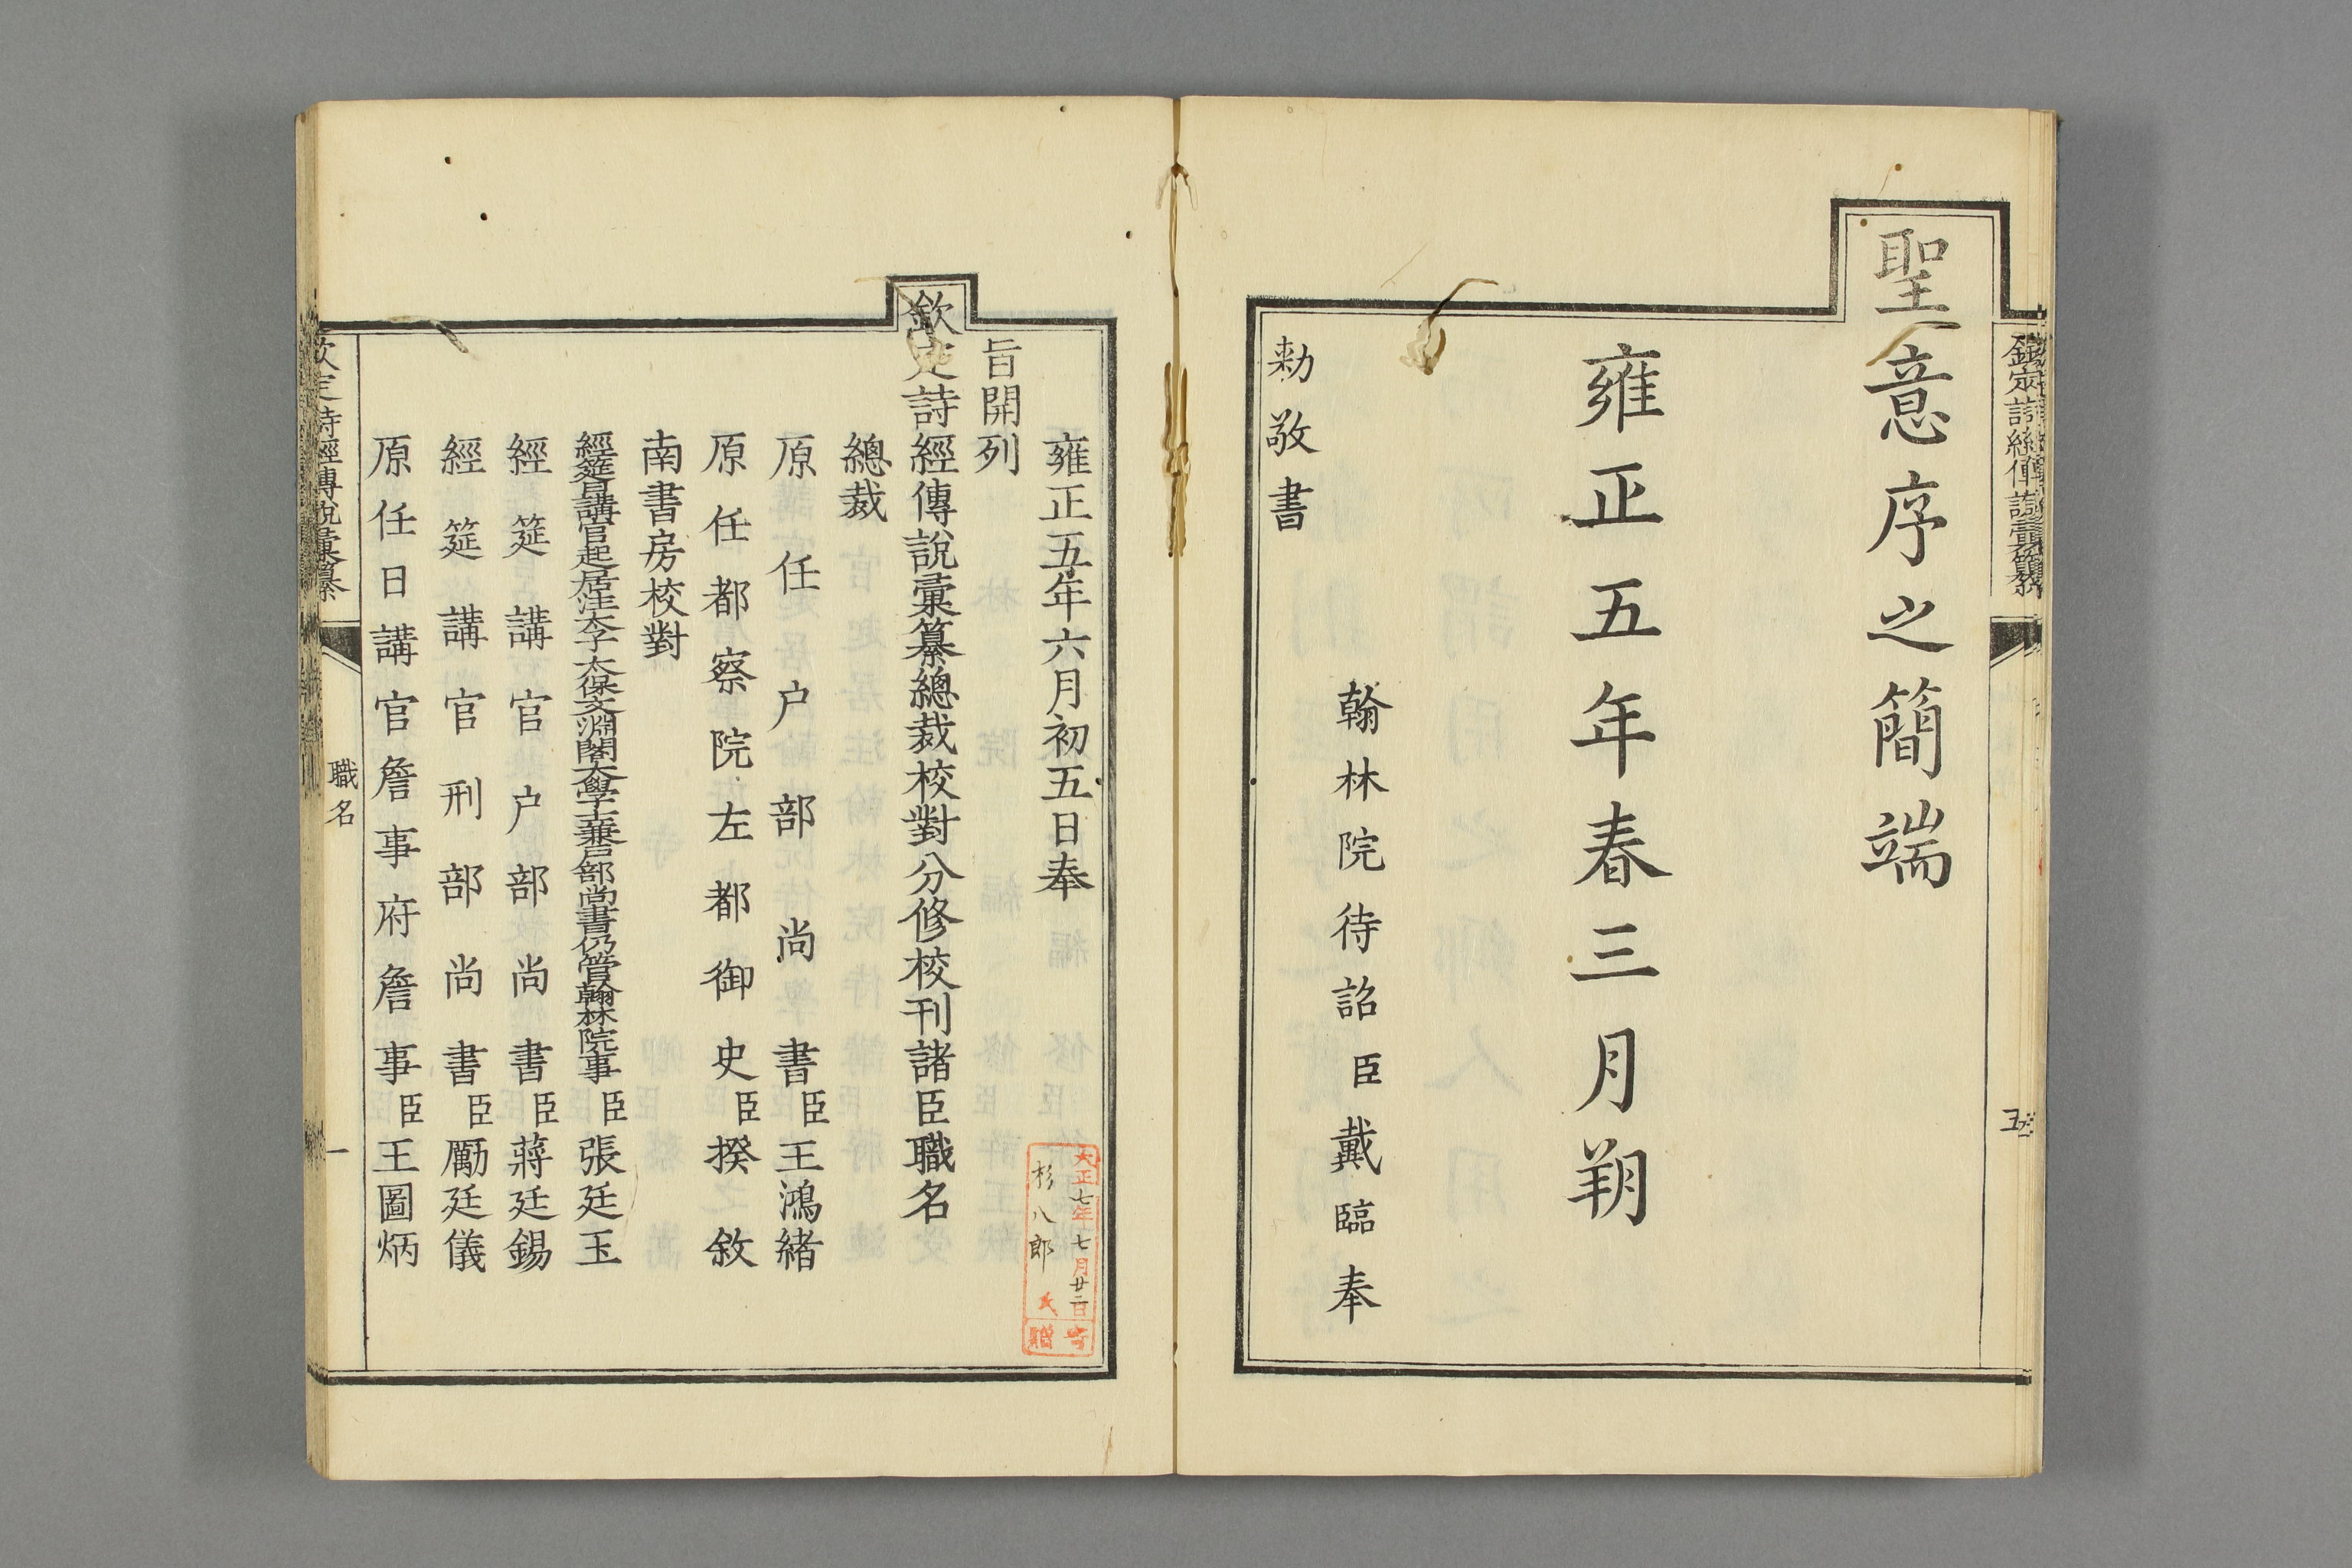 聖意序之簡端
雍正五年春三月朔
翰林院待詔臣戴臨奉
勅敬書
五
雍正五年六月初五日奉
旨開列
欽定詩經傳說彙纂總裁校對分修校刊諸臣職名
總裁
原任戶部尚書臣王鴻緒
原任都察院左都御史臣揆敘
南書房校對
經筵日講官起居注太子太保文淵閣大學士兼戶部尚書仍管翰林院事臣張廷玉
經筵講官戶部尚書臣蔣廷錫
經筵講官刑部尚書臣勵廷儀
原任日講官詹事府詹事臣王圖炳
欽定詩經傳說彙纂
職名
一
大正七年七月廿二日
杉八郎氏
寄贈